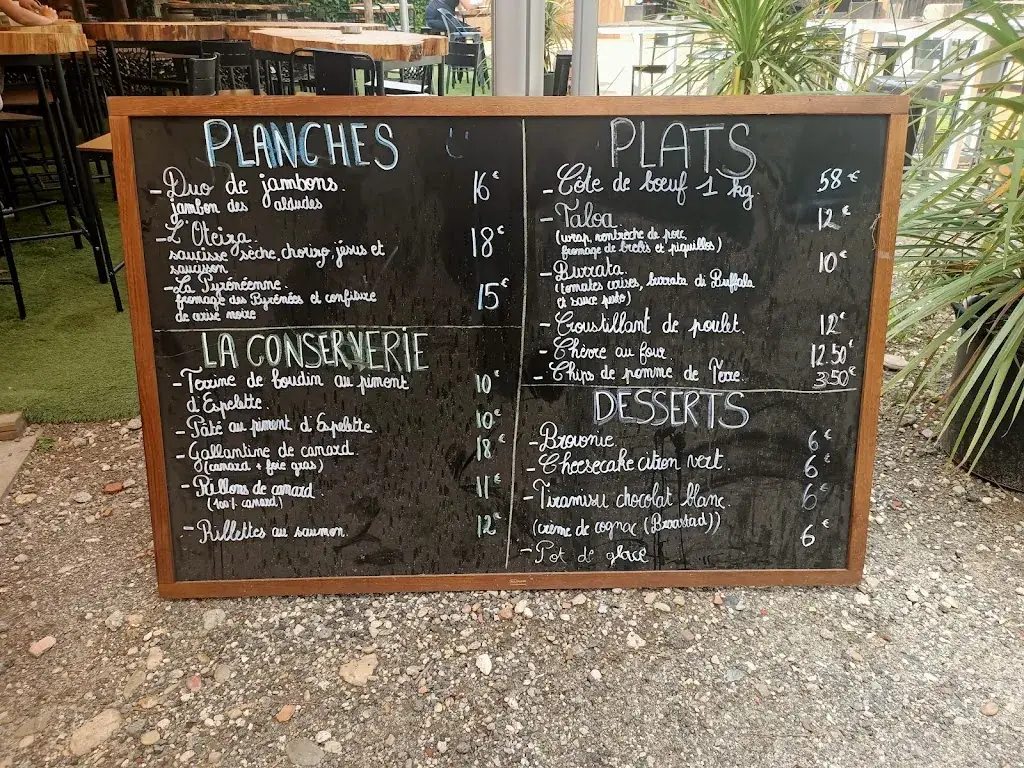 PLANCHES
- Duo de jambons. 16€
jambon des aldudes
- L'Oteiza. 18€
saucisse sèche, chorizo, jésus et
saucisson
- La Pyrénéenne. 15€
fromage des Pyrénées et confiture
de cerise noire
LA CONSERVERIE
- Terrine de boudin au piment 10€
d'Espelette.
- Pâté au piment d'Espelette 10€
- Gallantine de canard. 18€
(canard + foie gras)
- Rillons de canard. 11€
(100% canard)
- Rillettes au saumon. 12€
PLATS
- Côte de boeuf 1 kg. 58€
- Taloa. 12€
(wrap, ventrèche de porc,
fromage de brebis et piquillos)
- Burrata. 10€
(tomates cerises, burrata di Buffala
et sauce pesto)
- Croustillant de poulet. 12€
- Chèvre au four. 12.50€
- Chips de pomme de Terre. 3.50€
DESSERTS
- Brownie. 6€
- Cheesecake citron vert. 6€
- Tiramisu chocolat blanc. 6€
(crème de cognac (Braastad))
- Pot de glace 6€